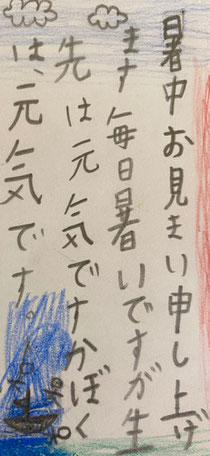 暑中お見まい申し上げ
ます毎日暑いですが生
先は元気ですかぼく
は、元気です。